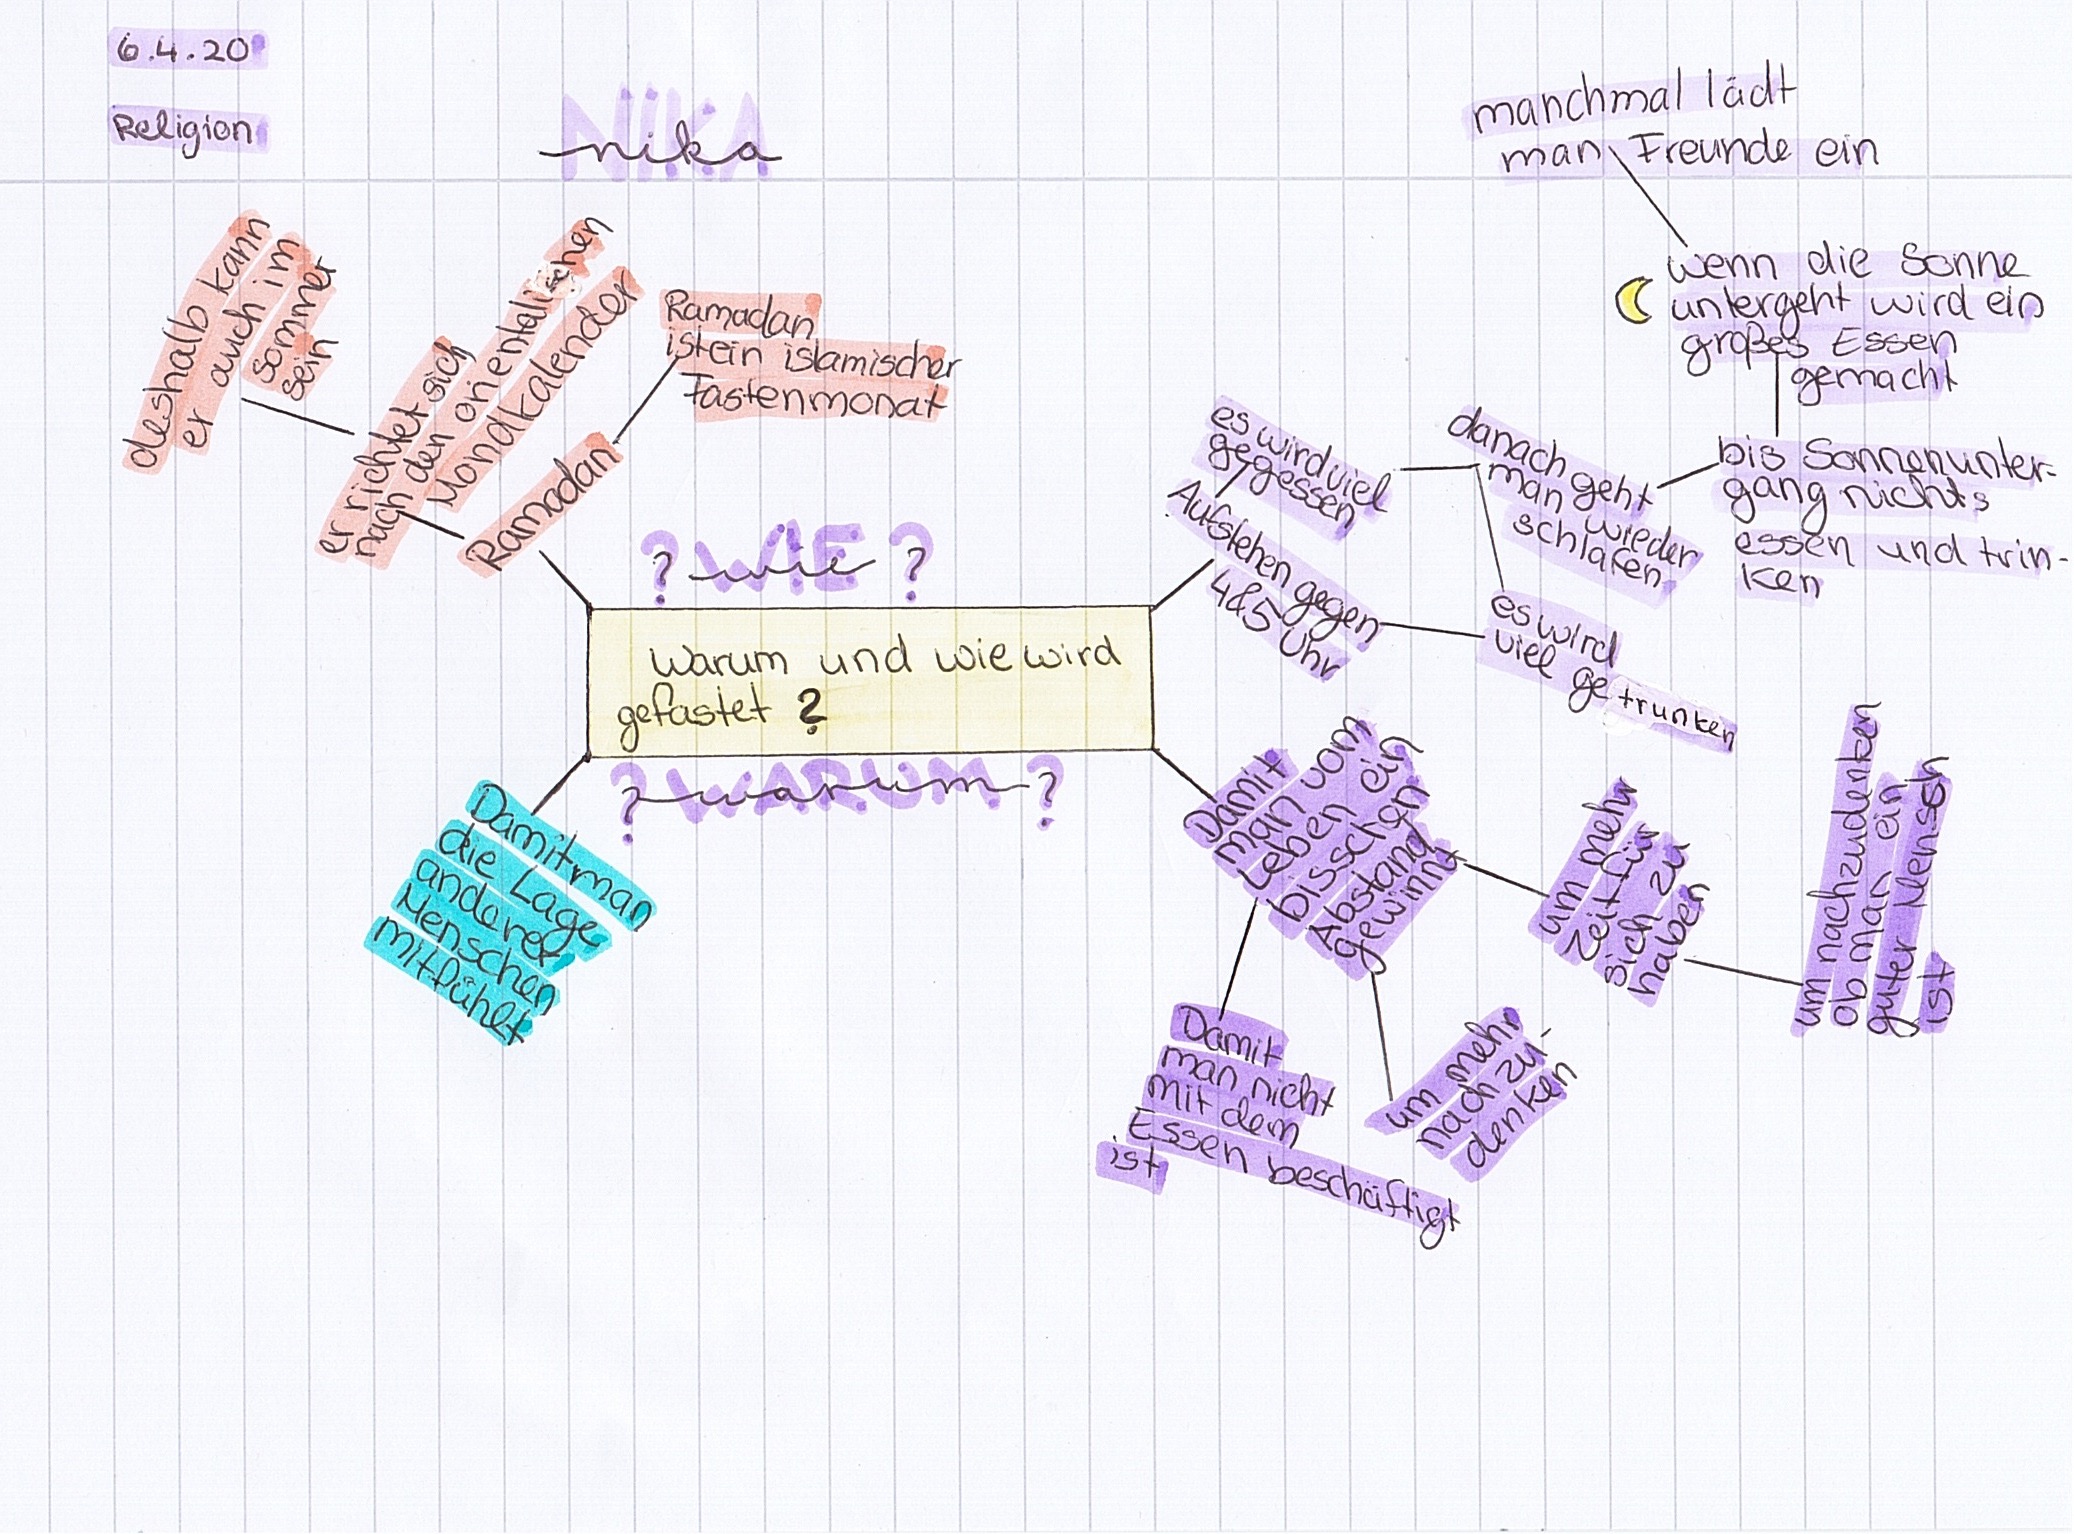 6.4.20
Religion
NIKA
nika
manchmal lädt
man Freunde ein
wenn die Sonne
untergeht wird ein
großes Essen
gemacht
bis Sonnenunter-
gang nichts
essen und trin-
ken
danach geht
man wieder
schlafen
es wird viel
gegessen
Aufstehen gegen
4&5 Uhr
es wird
viel getrunken
deshalb kann
er auch im
sommer
sein
er richtet sich
nach den orientalischen
Mondkalender
Ramadan
istein islamischer
Fastenmonat
Ramadan
? WIE ?
? wie ?
warum und wie wird
gefastet ?
? WARUM ?
? warum ?
Damit man
die Lage
anderer
Menschen
mitfühlt
Damit
man vom
Leben ein
bisschen
Abstand
gewinnt
um mehr
Zeit für
sich zu
haben
um nachzudenken
ob man ein
guter Mensch
ist
Damit
man nicht
mit dem
Essen beschäftigt
ist
um mehr
nach zu-
denken